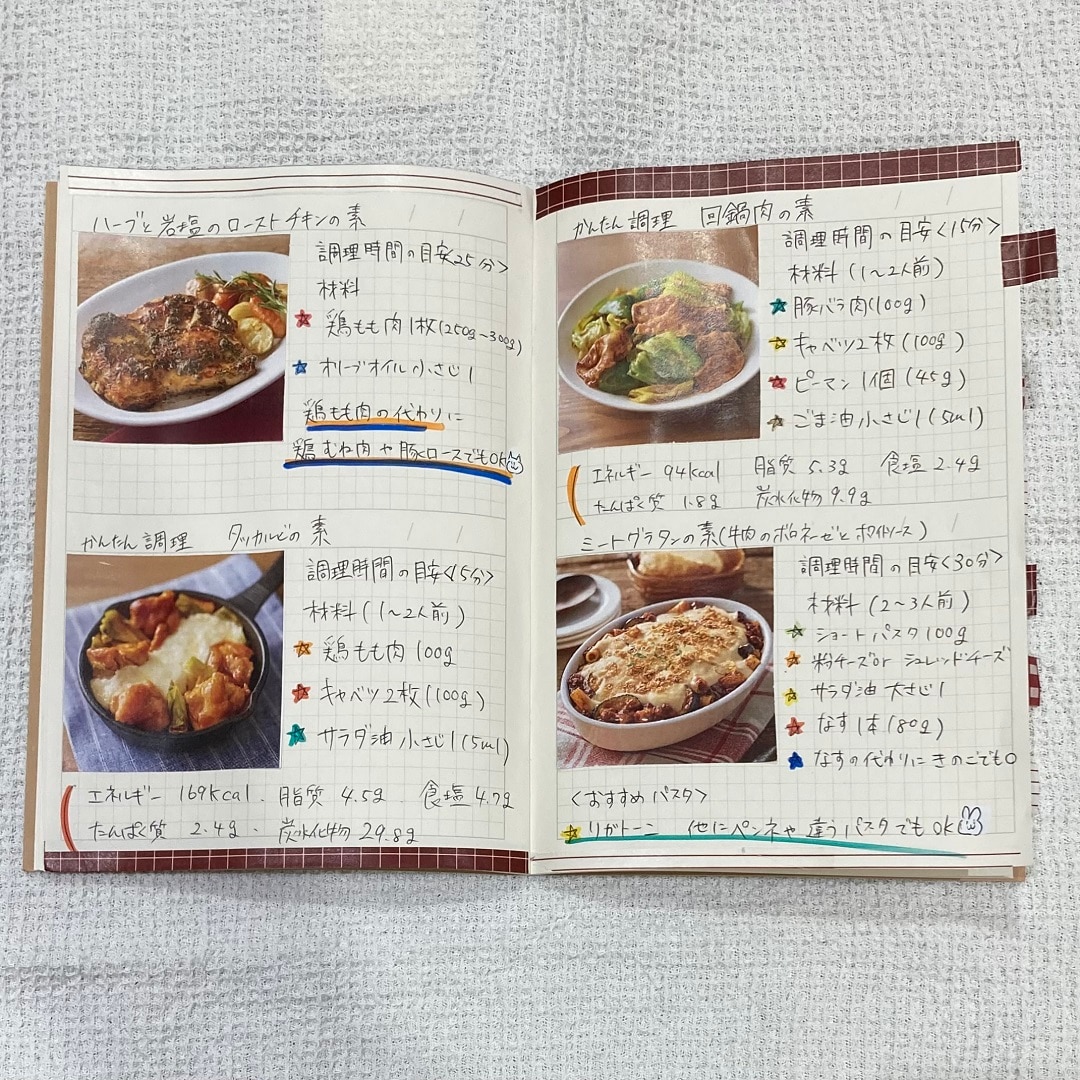 ハーブと岩塩のローストチキンの素
調理時間の目安<25分>
材料
鶏もも肉1枚(250g~300g)
オリーブオイル小さじ1
鶏もも肉の代わりに
鶏むね肉や豚ロースでもOK
かんたん調理 タッカルビの素
調理時間の目安<15分>
材料(1~2人前)
鶏もも肉 100g
キャベツ2枚(100g)
サラダ油 小さじ1(5ml)
エネルギー 169kcal . 脂質 4.5g . 食塩 4.7g
たんぱく質 2.4g . 炭水化物 29.8g
かんたん調理 回鍋肉の素
調理時間の目安<15分>
材料(1~2人前)
豚バラ肉(100g)
キャベツ2枚(100g)
ピーマン 1個(45g)
ごま油小さじ1(5ml)
エネルギー 94kcal 脂質 5.3g 食塩 2.4g
たんぱく質 1.8g 炭水化物 9.9g
ミートグラタンの素(牛肉のボロネーゼとホワイトソース)
調理時間の目安<30分>
材料(2~3人前)
ショートパスタ100g
粉チーズor シュレッドチーズ
サラダ油 大さじ1
なす1本(80g)
なすの代わりにきのこでも○
<おすすめパスタ>
リガトーニ 他にペンネや違うパスタでもOK